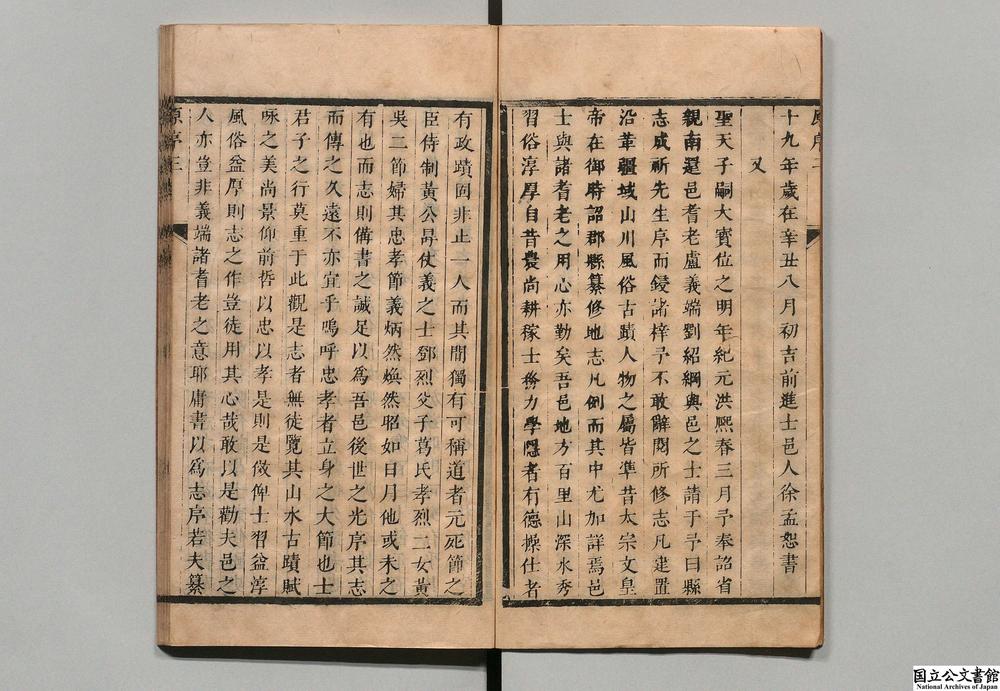 十九年歲在辛丑八月初吉前進士邑人徐孟恕書
又
聖天子嗣大寶位之明年紀元洪熙春三月予奉詔省
親南還邑耆老盧義端劉紹綱與邑之士請予予曰縣
志成祈先生序而鋟諸梓予不敢辭閱所修志凡建置
沿革疆域山川風俗古蹟人物之屬皆準昔太宗文皇
帝在御時詔郡縣纂修地志凡例而其中尤加詳焉邑
士與諸耆老之用心亦勤矣吾邑地方百里山深水秀
習俗淳厚自昔農尚耕稼士務力學隱者有德操仕者
有政蹟固非止一人而其間獨有可稱道者元死節之
臣侍制黃公昺仗義之士鄧烈父子葛氏孝烈二女黃
吳二節婦其忠孝節義炳然煥然昭如日月他或未之
有也而志則備書之誠足以爲吾邑後世之光序其志
而傳之久遠不亦宜乎嗚呼忠孝者立身之大節也士
君子之行莫重于此觀是志者無徒覽其山水古蹟賦
咏之美尚景仰前哲以忠以孝是則是倣俾士習益淳
風俗益厚則志之作豈徒用其心哉敢以是勸夫邑之
人亦豈非義端諸耆老之意耶庸書以爲志序若夫纂
原序三
国立公文書館
National Archives of Japan